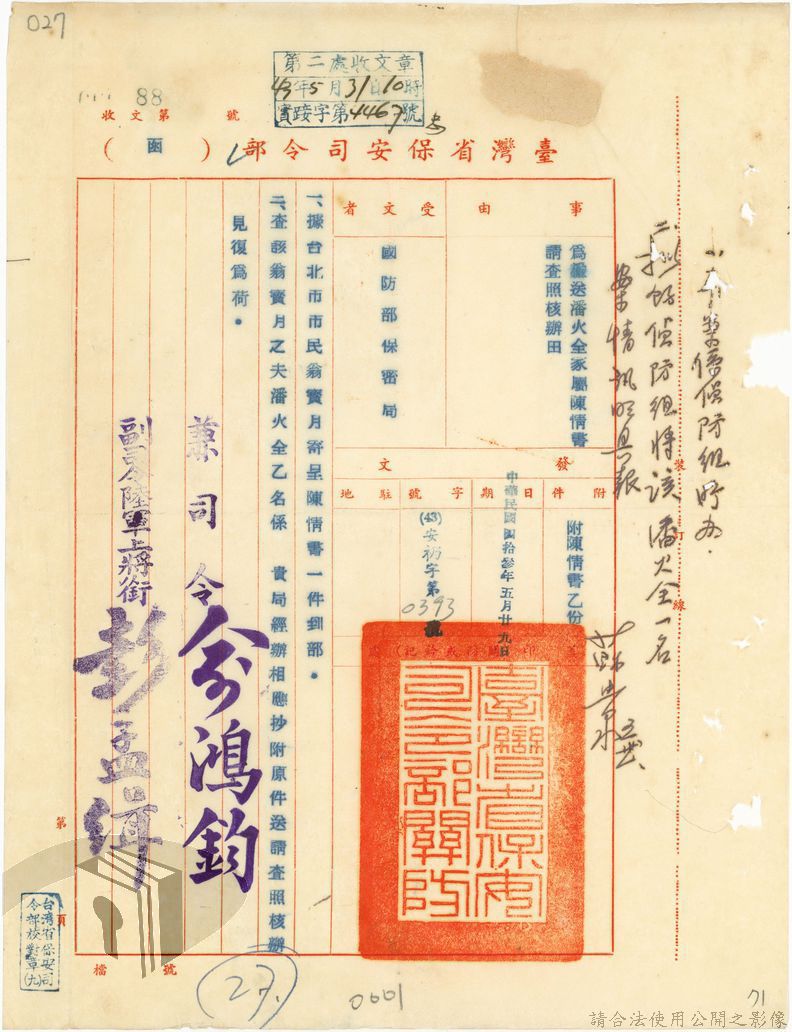 027
第二處收文章
43年5月31日10時
實踐字第4467號
88
收文第 號
臺灣省保安司令部(函)
事由
為檢送潘火全家屬陳情書
請查照核辦由
受文者
國防部保密局
發文
附件
附陳情書乙份
日期
中華民國四拾參年五月廿九日
字號
(43)安礽字第
0393
號
駐地
一、據台北市市民翁寶月寄呈陳情書一件到部。
二、查該翁寶月之夫潘火全乙名係 貴局經辦相應抄附原件送請查照核辦
見復為荷。
兼司令俞鴻鈞
副司令陸軍上將銜彭孟緝
臺灣省保安
司令部關防
裝
訂
線
一、本案係偵防組所办.
二、擬飭偵防組將該潘火全一名
案情訊明具報
第 頁
台灣省保安司
令部校對章(九)
檔 號
27.
0001
71
請合法使用公開之影像